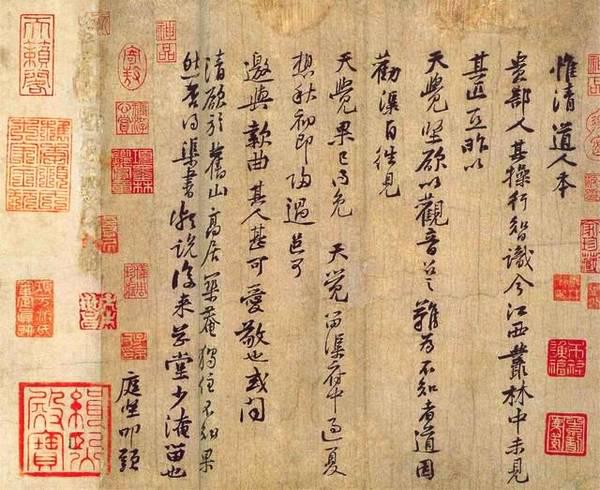 惟清道人本
貴部人其操行智識今江西叢林中未見
其匹亞昨以
天覺堅欲以觀音召之難為不知者道因
勸渠自往見
天覺果已得免 天覺留渠府中過夏
想秋初即歸過邑可
邀與款曲其人甚可愛敬也或聞
清欲於舊山高居築菴獨住不知果
然否得渠書頗說後來草堂少淹留也
庭堅叩頭
天籟閣
神品